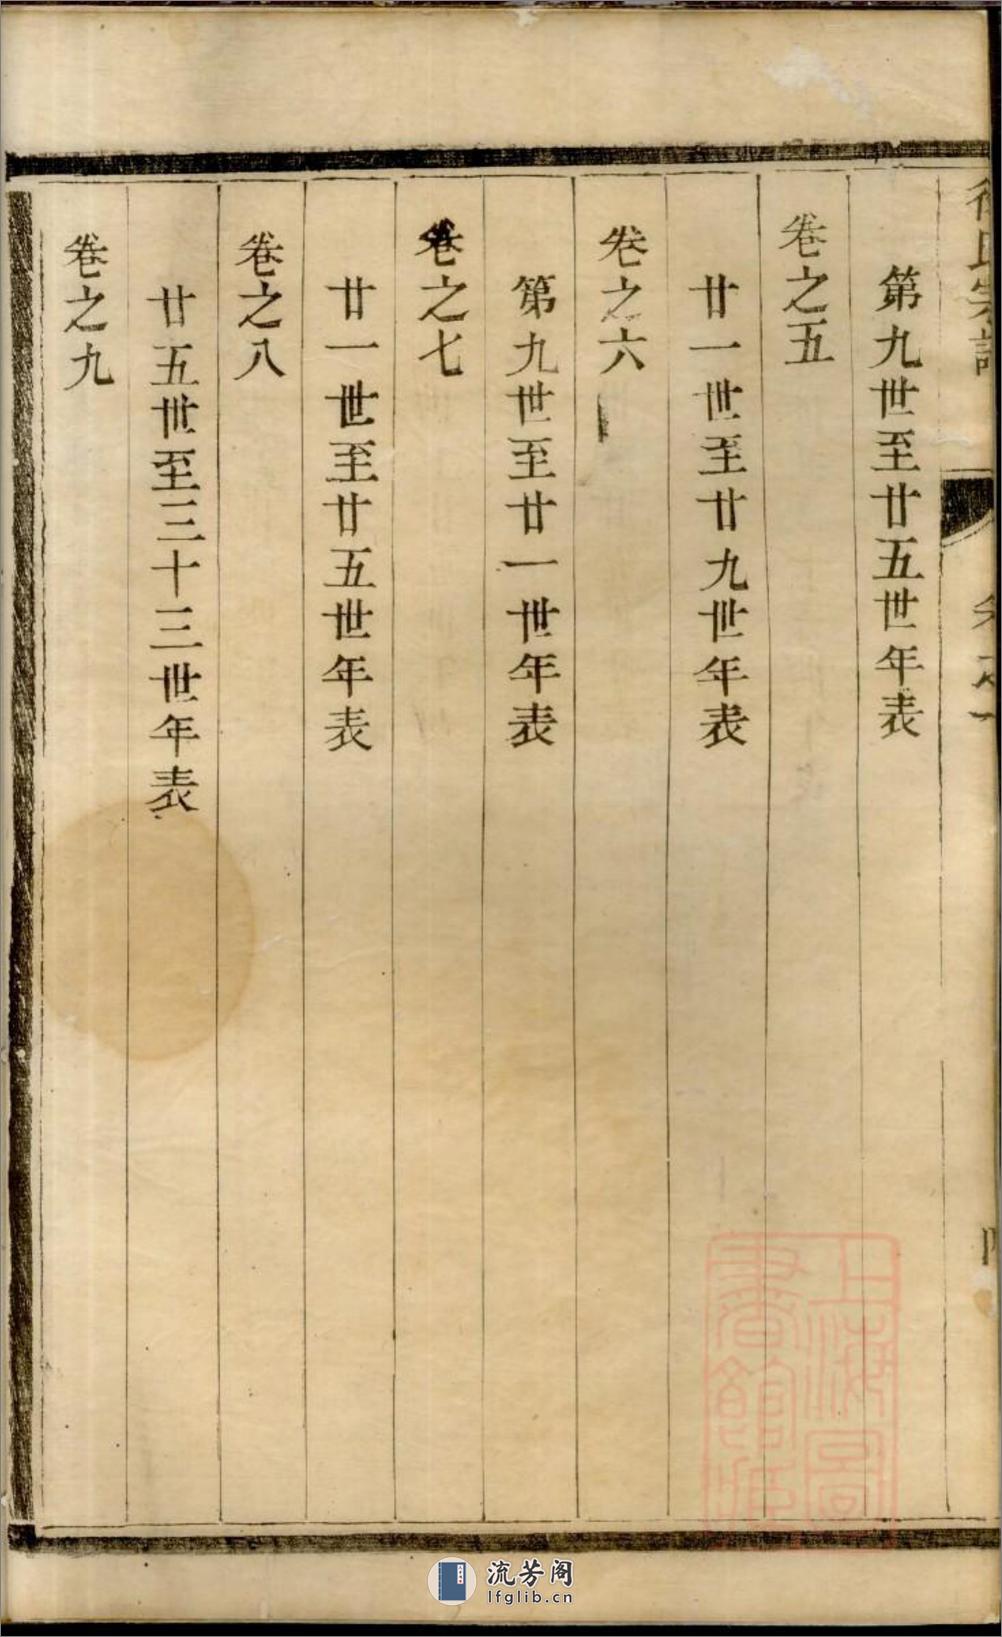 氏宗譜
卷之一
第九世至廿五世年表
卷之五
廿一世至廿九世年表
卷之六
第九世至廿一世年表
卷之七
廿一世至廿五世年表
卷之八
廿五世至三十三世年表
卷之九
上海圖
書館藏
流芳阁
lfglib.cn